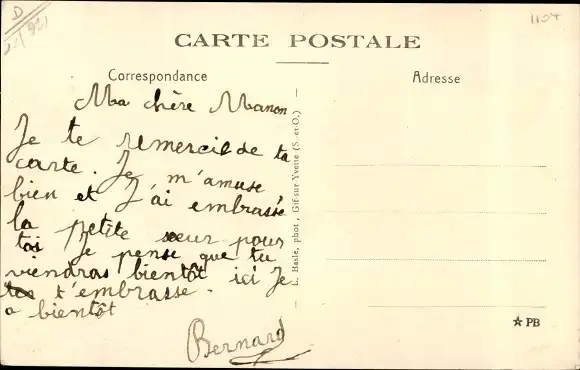 D
1104
CARTE POSTALE
Correspondance
Adresse
Ma chère Manon
Je te remercie de ta
carte. Je m'amuse
bien et J'ai embrassé
la petite sœur pour
toi Je pense que tu
viendras bientôt ici Je
t'embrasse.
a bientôt
Bernard
L. Basle, phot., Gif-sur-Yvette (S.-et-O.)
PB